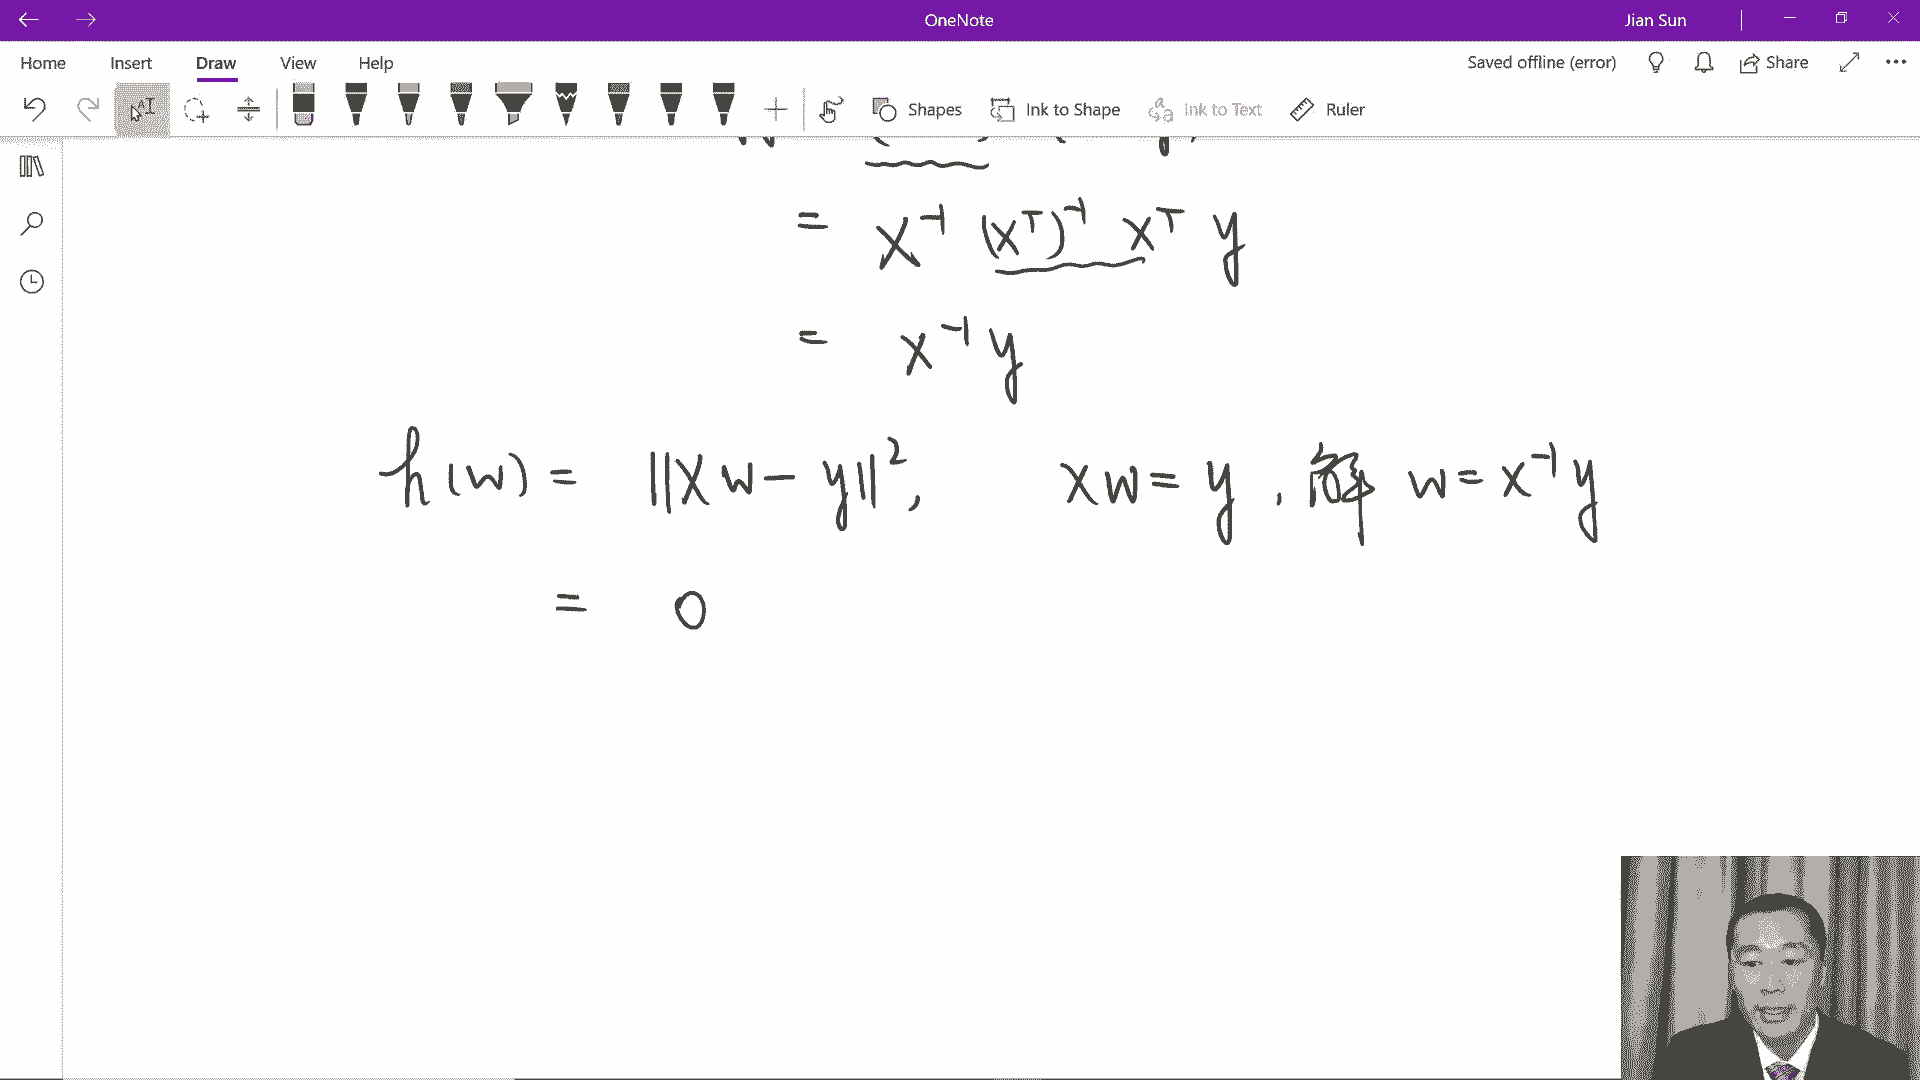 OneNote
Jian Sun
Home Insert Draw View Help
Saved offline (error)
Share
Shapes
Ink to Shape
Ink to Text
Ruler
= X⁻¹ (Xᵀ)⁻¹ Xᵀ y
= X⁻¹ y
h(w) = ||Xw - y||², Xw = y, 解 w = X⁻¹ y
= 0